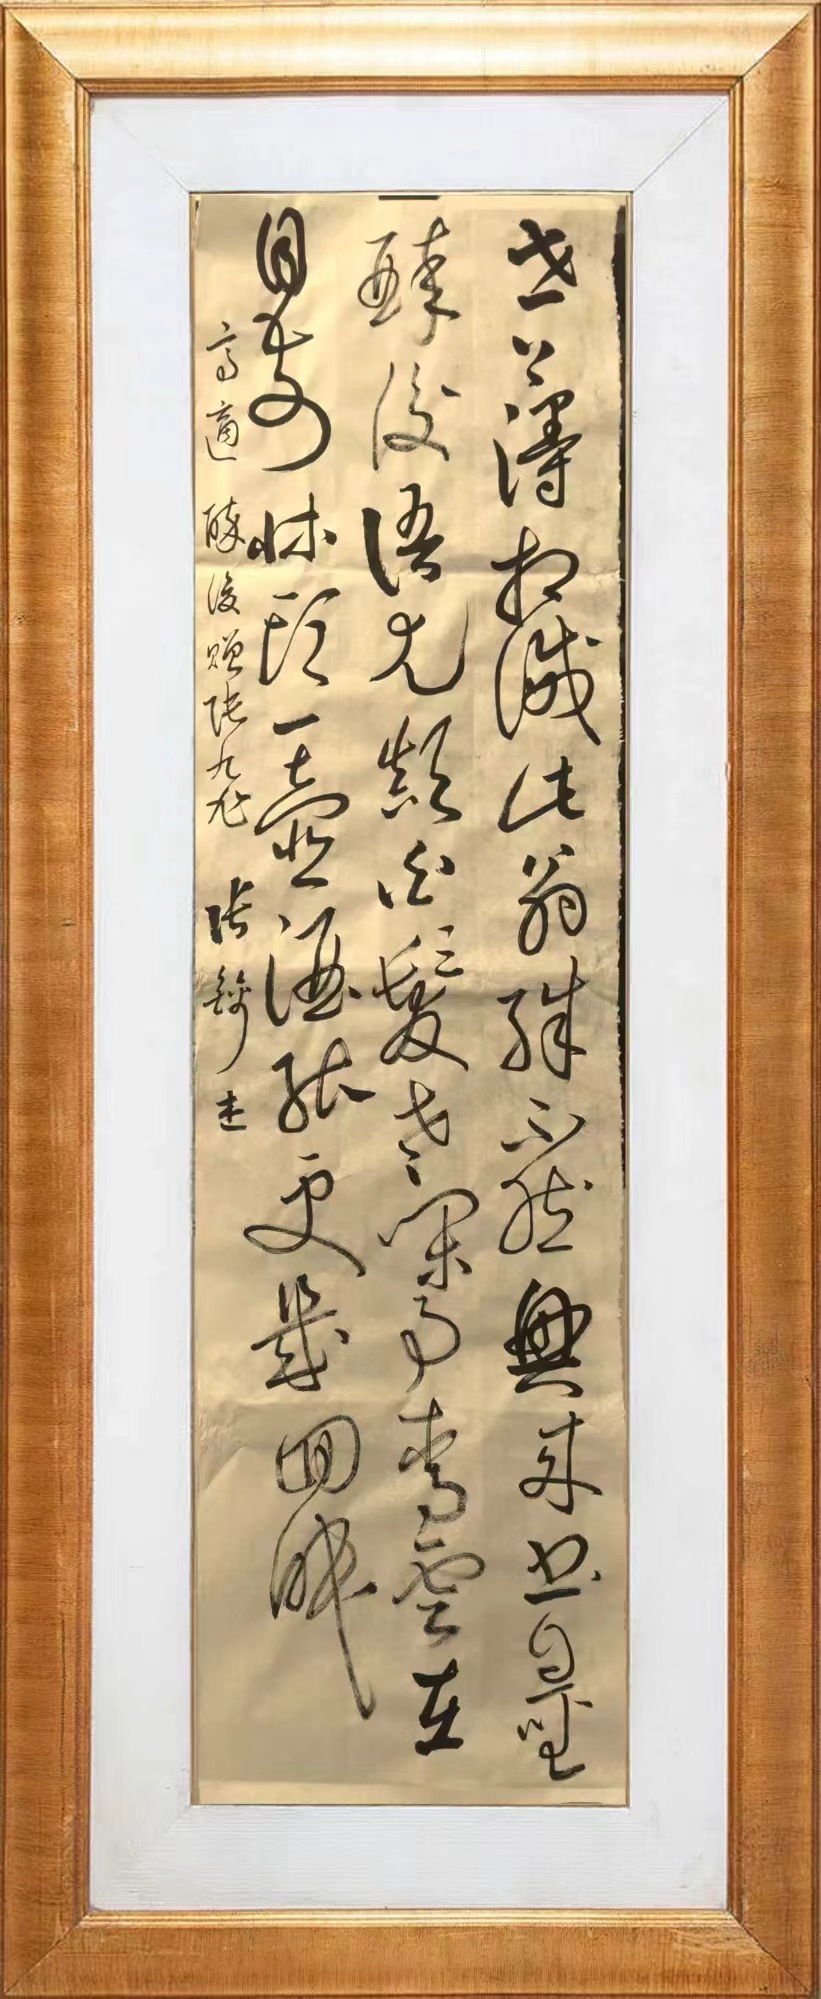 世上漫相識此翁殊不然興來書自聖
醉後語尤顛白髮老閑事青雲在
目前牀頭一壺酒能更幾回眠
高適 醉後贈張九旭 張 書